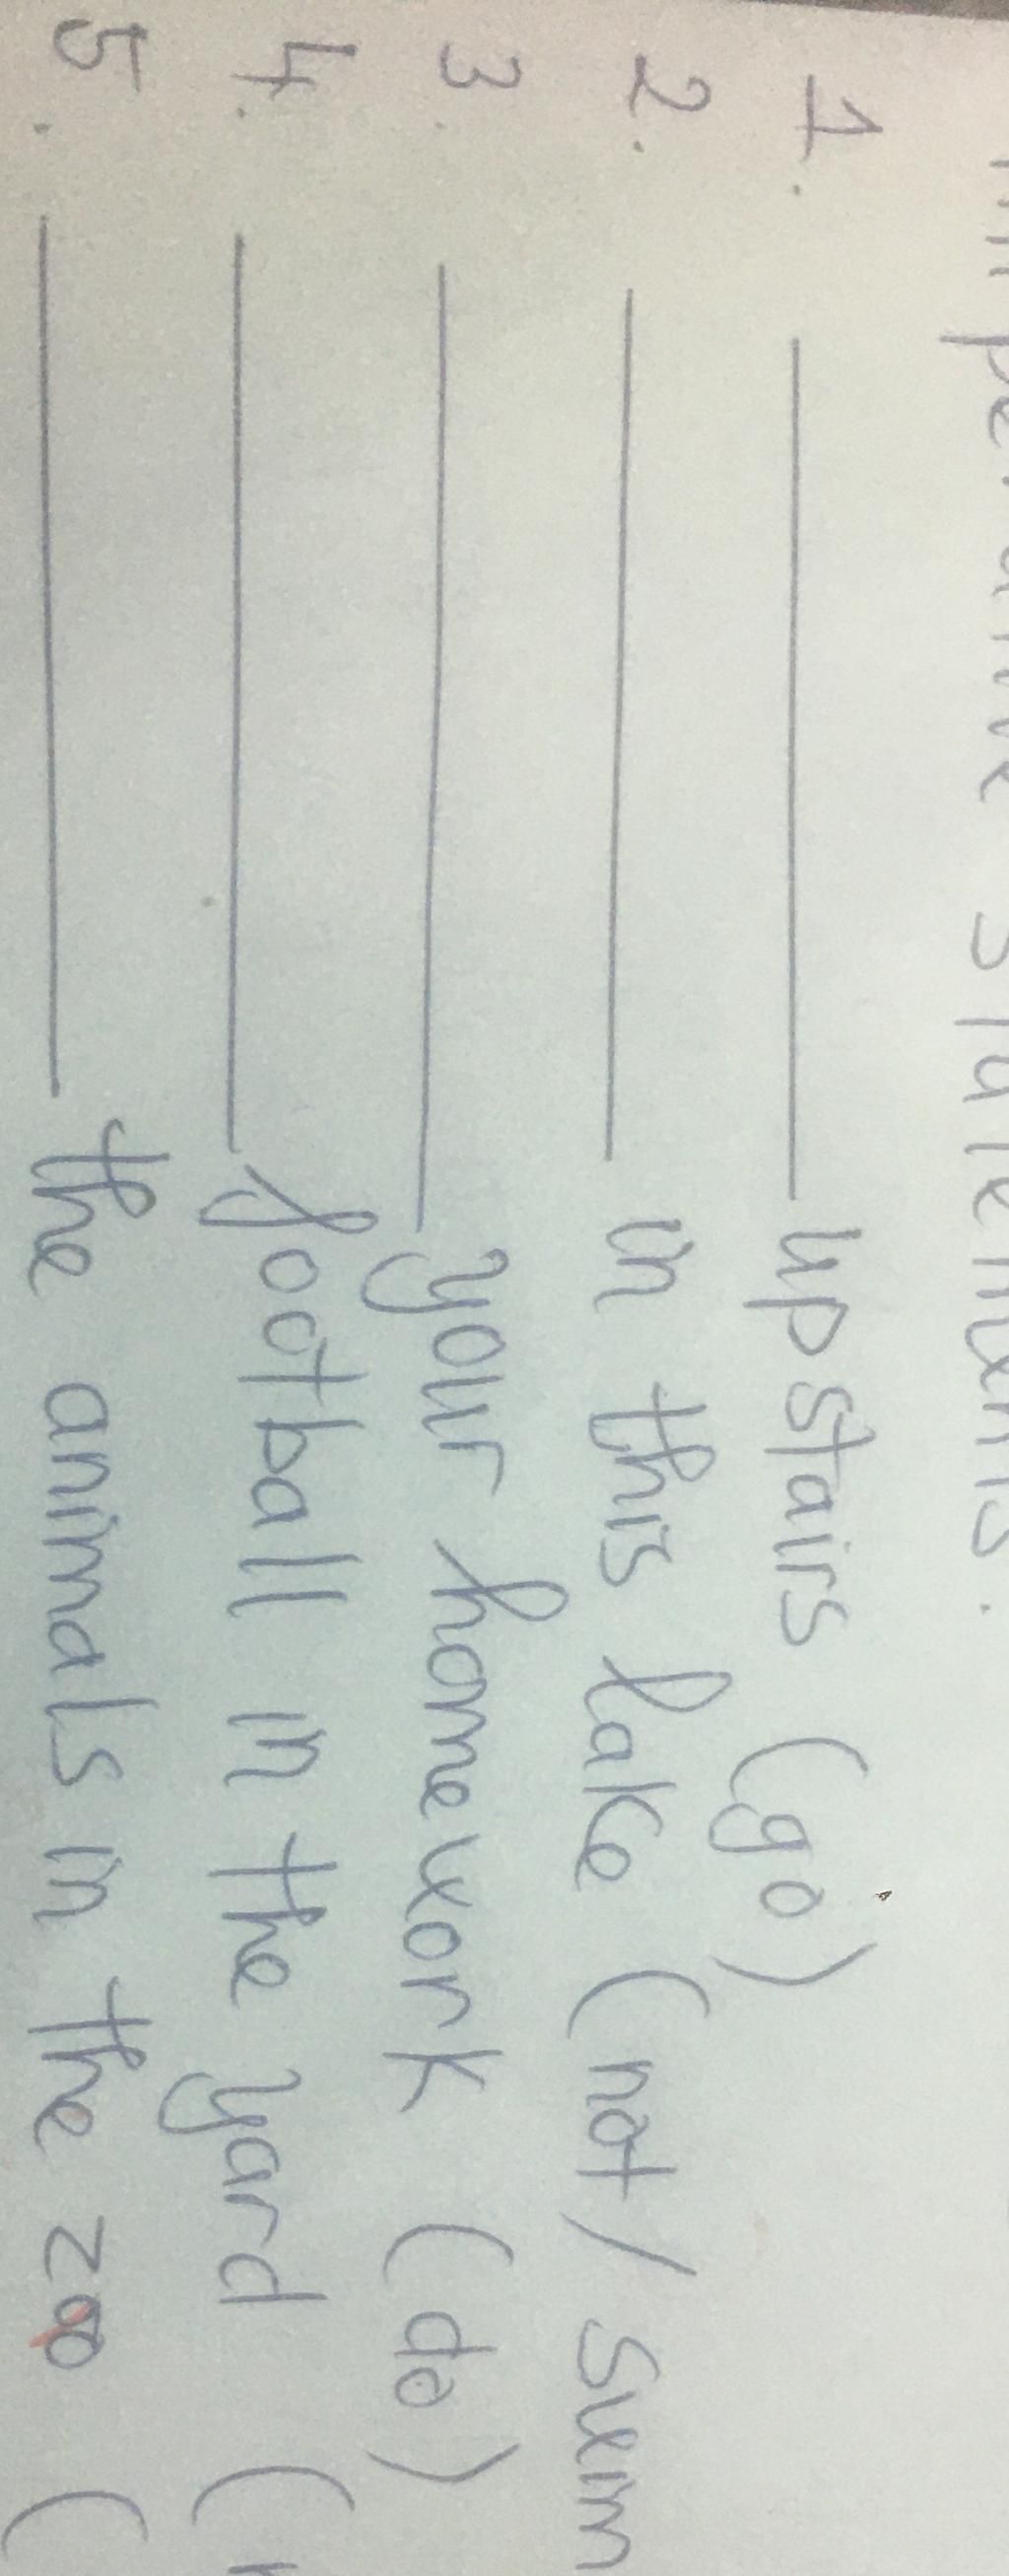 Imperative statements.
1. ______ upstairs (go)
2. ______ in this lake (not/swim
3. ______ your homework (do)
4. ______ football in the yard (
5. ______ the animals in the zoo (